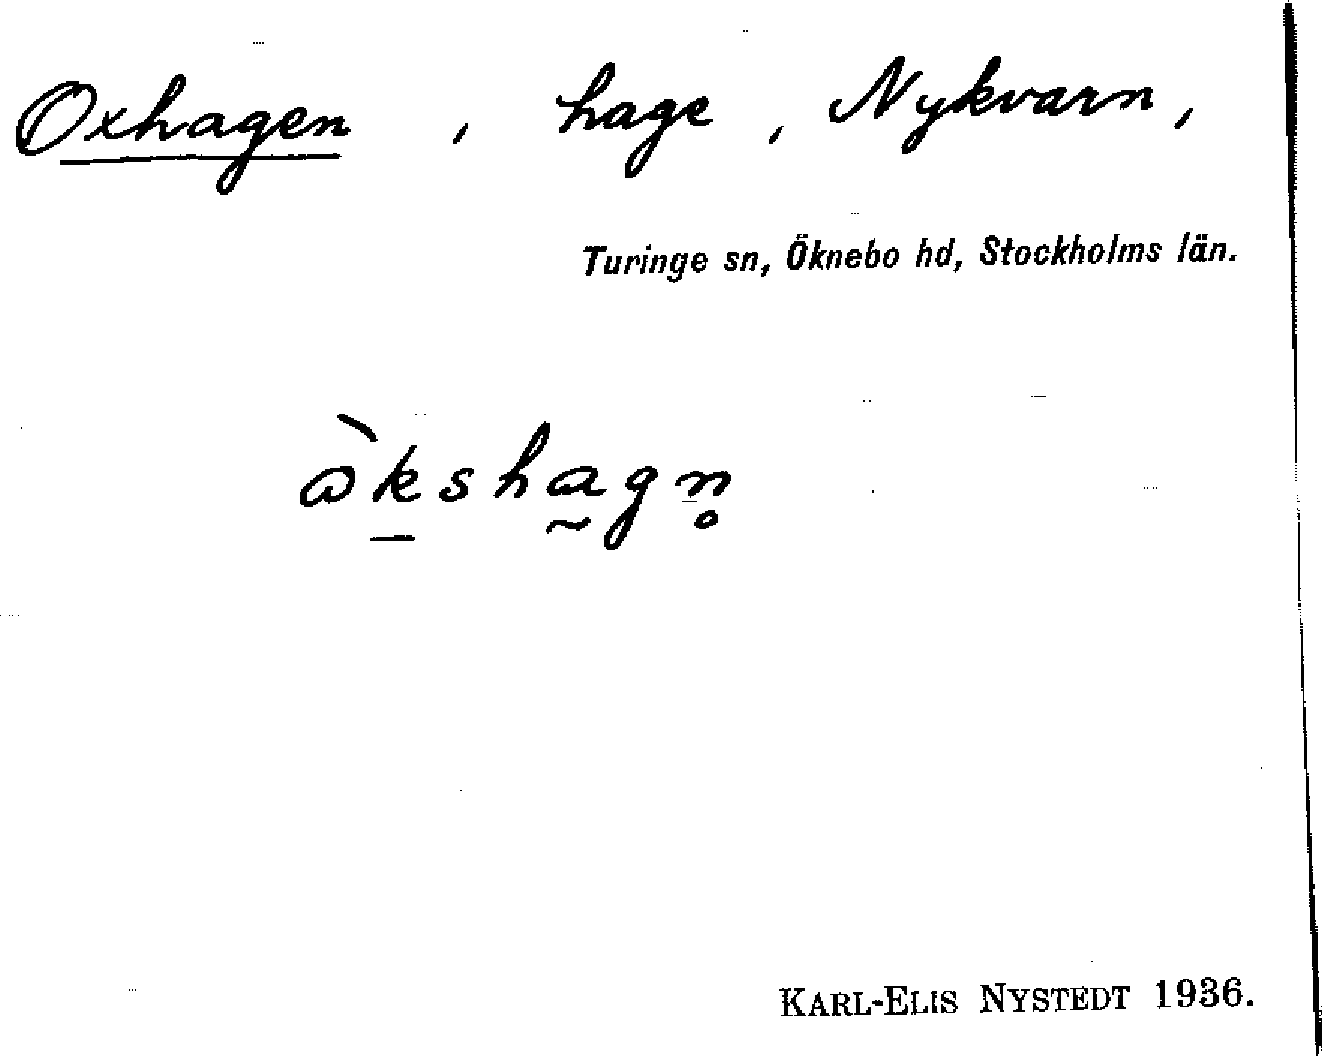 Oxhagen, hage, Nykvarn,
Turinge sn, Öknebo hd, Stockholms län.
ὼk̠sha̰gn̥
KARL-ELIS NYSTEDT 1936.